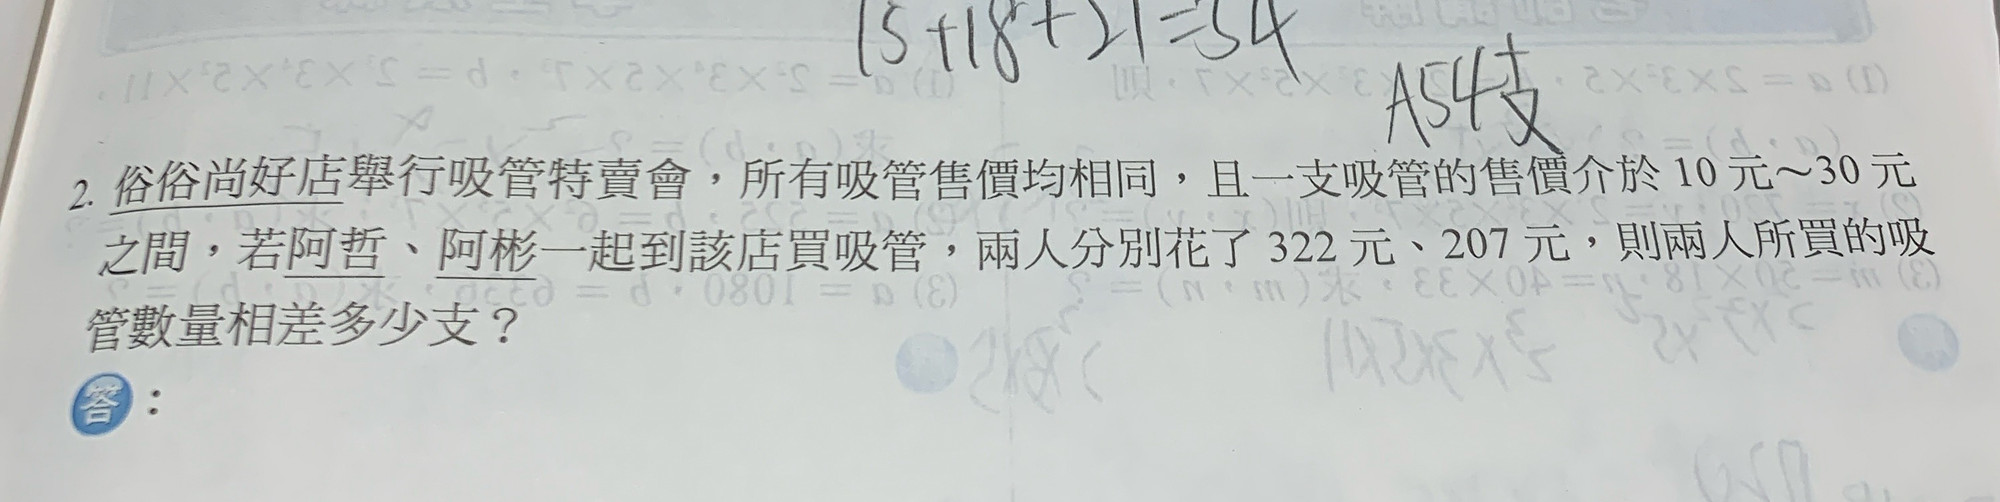 15+18+21=54
A54支
2. 俗俗尚好店舉行吸管特賣會，所有吸管售價均相同，且一支吸管的售價介於 10 元～30 元
之間，若阿哲、阿彬一起到該店買吸管，兩人分別花了 322 元、207 元，則兩人所買的吸
管數量相差多少支？
答：